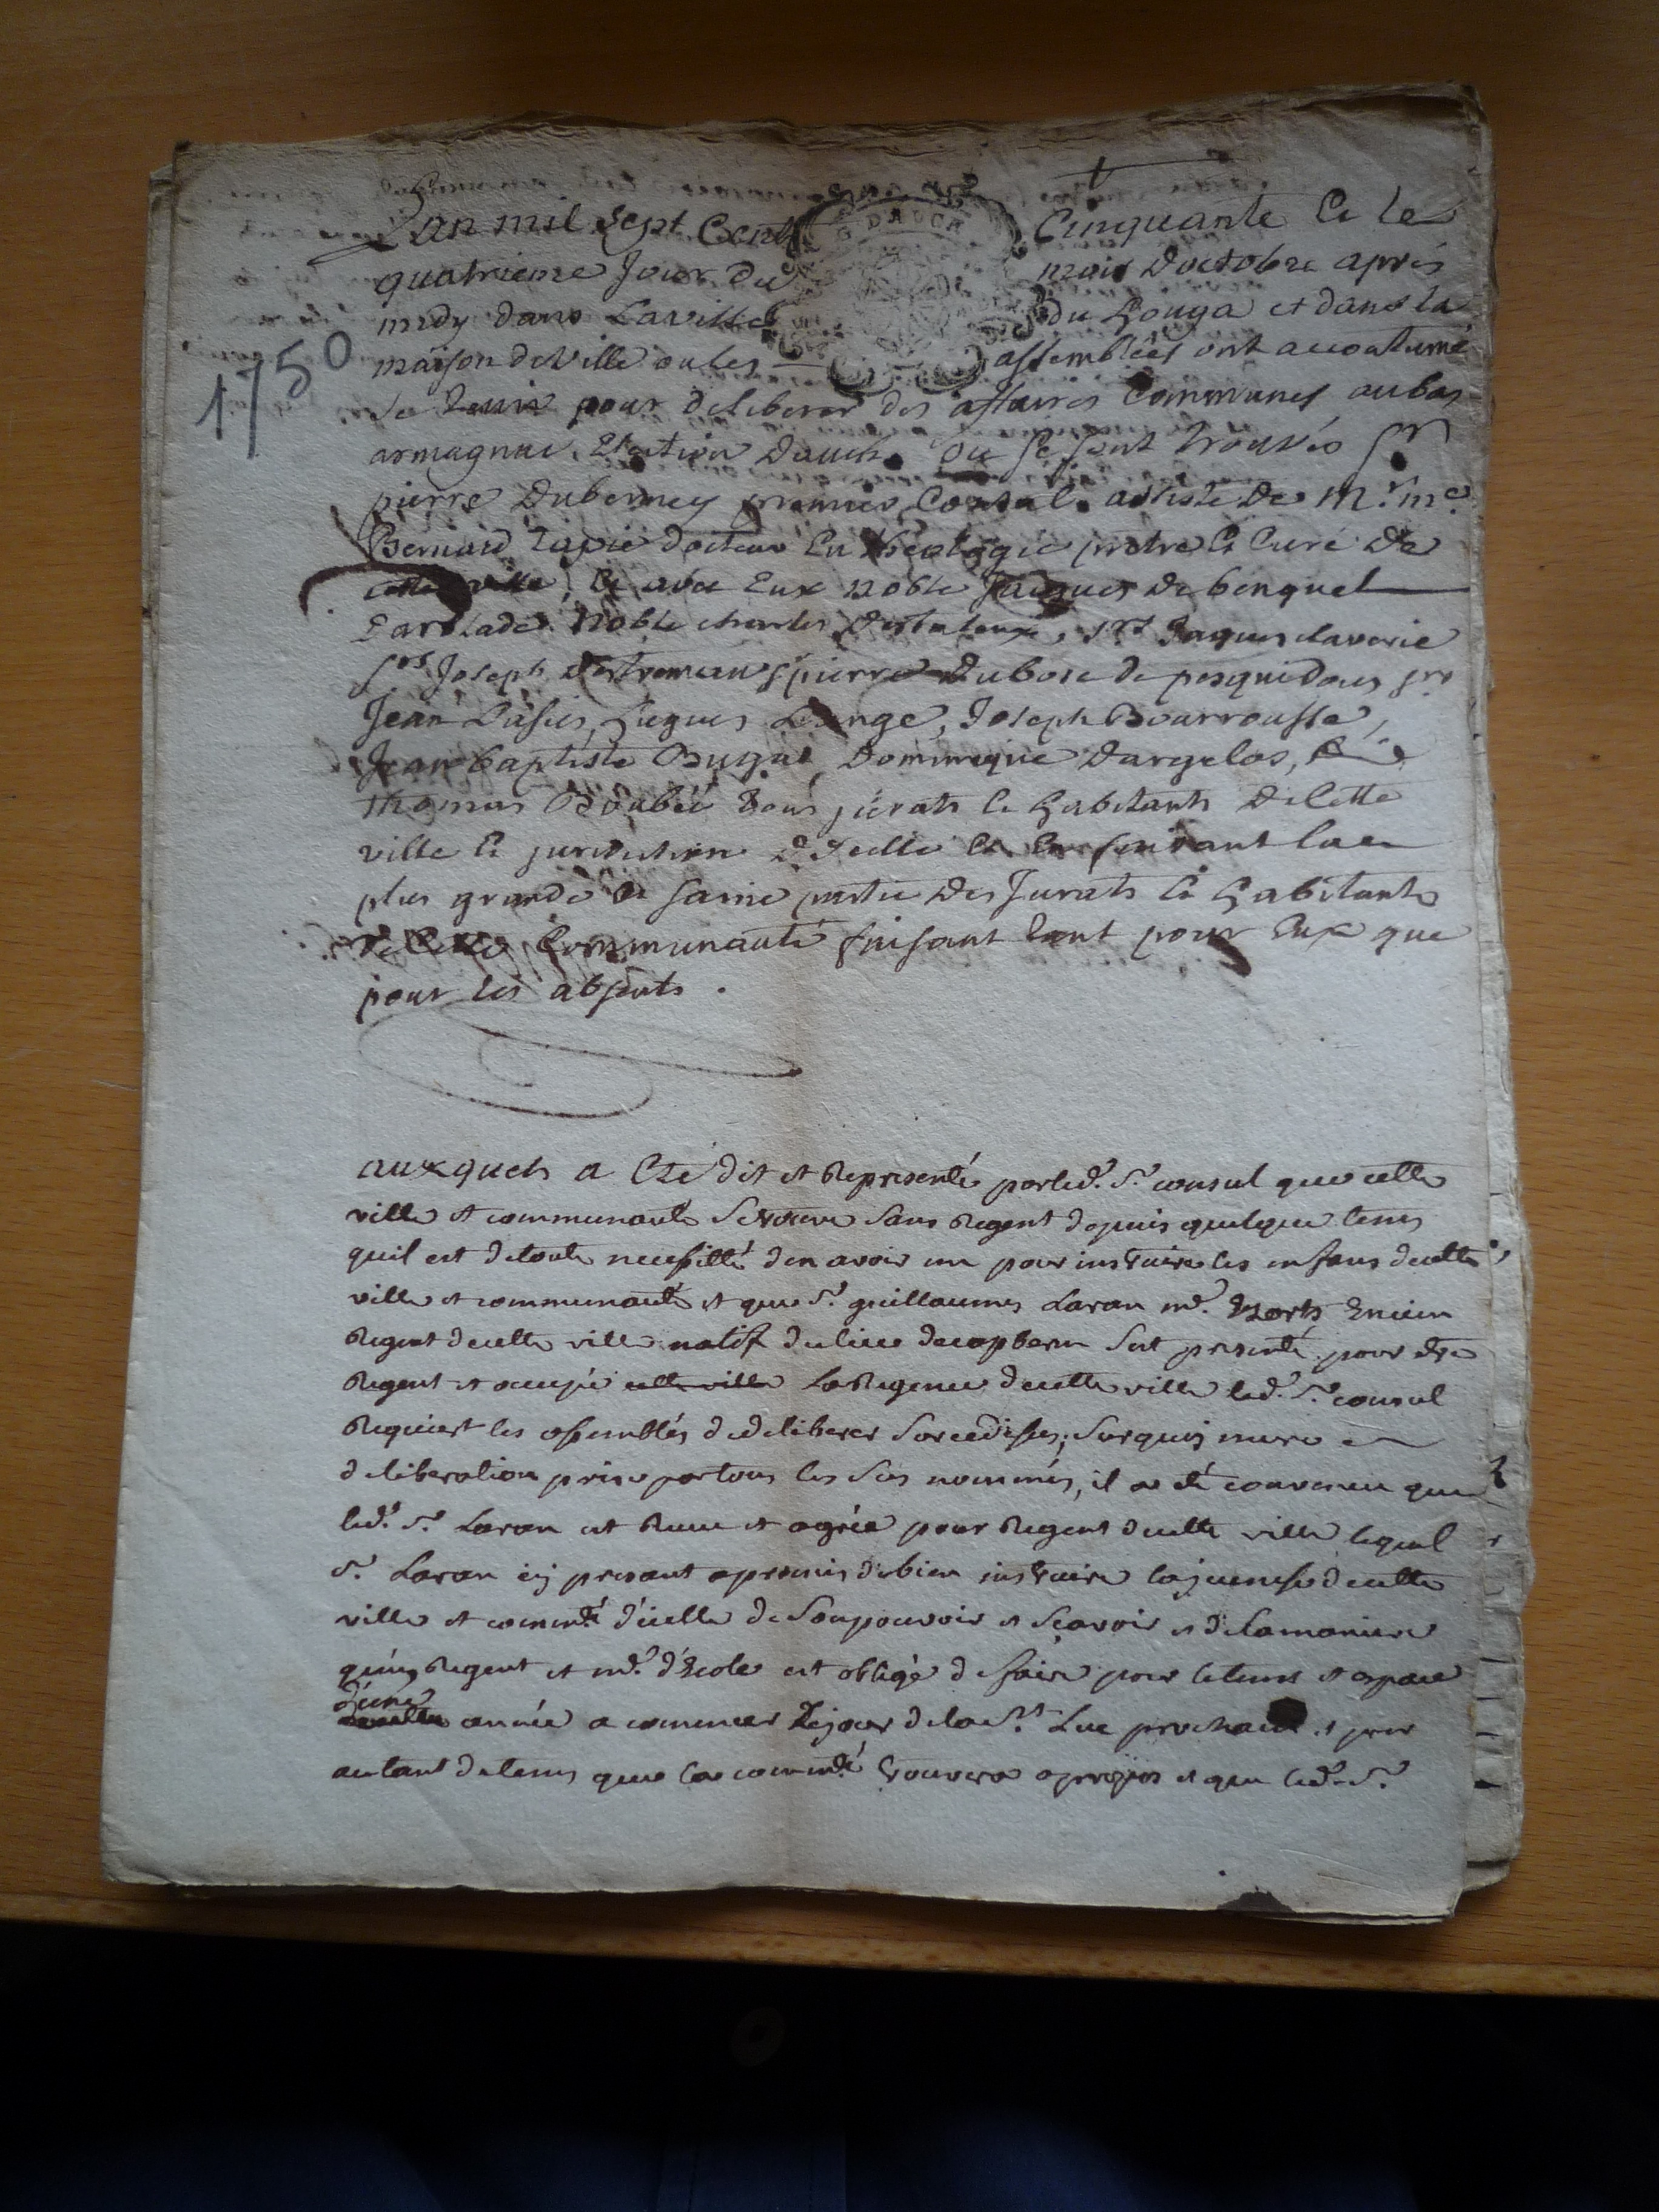 Lan mil sept Cent Cinquante Et le
G. DAUCH
quatrieme Jour Du mois Doctobre aprés
midy dans Laville du houga et dans la
1750
maison deville ou les assemblées ont accoutumé
se tenir pour deliberer des affaires Communes au bas
armagnac Election Dauch. ou se sont trouvés Sr
pierre Duberney premier Consul assisté De Mr. me.
Bernard Lapie docteur En theologie pretre Et Curé De
cette ville, Et avec Eux Noble Jacques De benquet
Noble charles, Jaques claverie
Srs. Joseph pierre Dubosc de pesquidous
Jean hugues Lange, Joseph Bourrousse,
Jean baptiste Dominique Dargelos,
thomas Boubée tous jurats Et habitants De Cette
ville Et jurediction D'Icelle Et En faisant la
plus grande Et saine partie Des Jurats Et habitants
De Cette Communauté faisant tant pour Eux que
pour les absents.
auxquels a Eté dit et Representé par led. Sr. consul que cette
ville et communauté se trouve sans Regent depuis quelque tems
quil est de toute necessitté d'en avoir un pour instruire les enfans decette
ville et communauté et que Sr. guillaume Laran me.
Regent decette ville natif du lieu de capbern s'est presenté pour etre
Regent et occupé cette ville La Regence decette ville led. Sr. consul
Requiert les assemblés de deliberer sur cedessus; surquoy mure
deliberation prise par tous les sus nommés, il a eté convenu que
led. Sr. Laran est Receu et agréé pour Regent decette ville lequel
Sr. Laran icy presant a promis de bien instruire la jeunesse decette
ville et commté. d'icelle de son pouvoir et scavoir et de la maniere
qu'un Regent et me. d'Ecole est obligé de faire pour le tems et espace
d'une
année a commencer le jour de la St. Luc prochain et pour
autant de tems que la commté. trouvera a propos et que led. Sr.